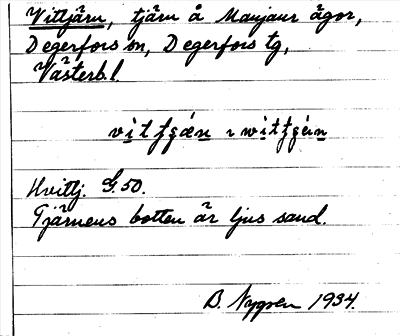 Vittjärn, tjärn å Manjaur ägor,
Degerfors sn, Degerfors tg,
Västerb. l.
Hvittj. G. 50.
Tjärnens botten är ljus sand.
B. Nygren 1934.